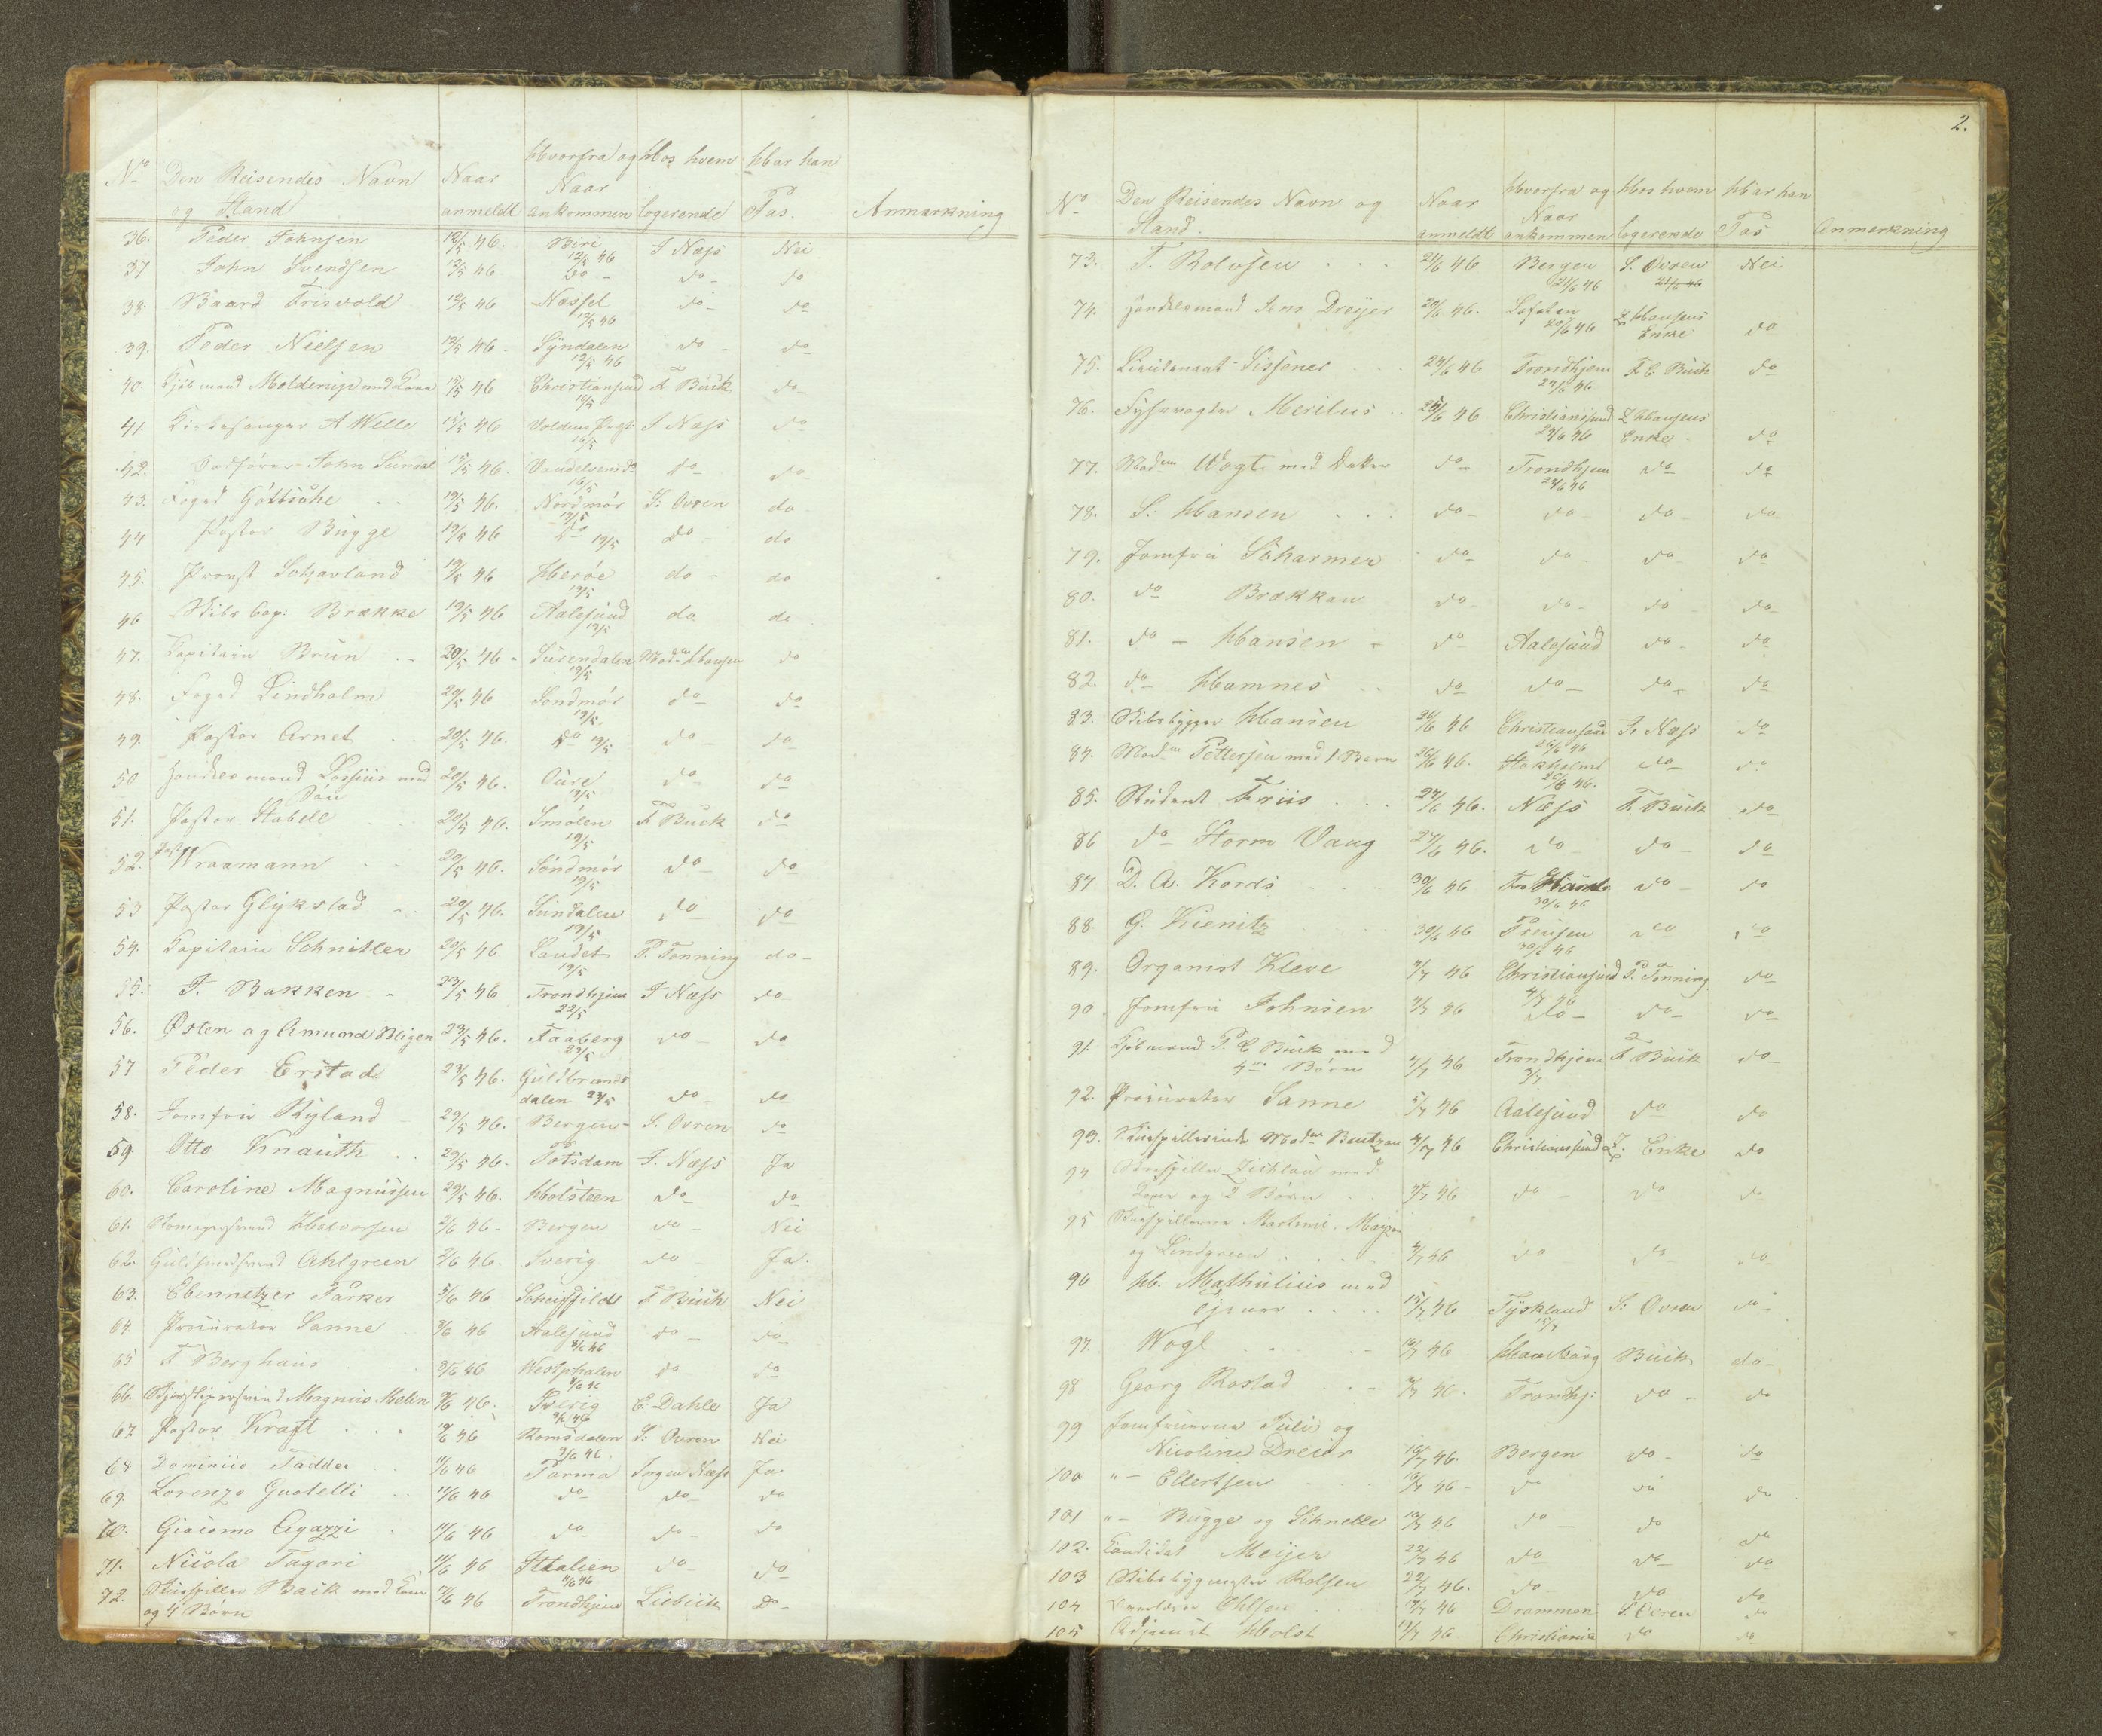 No Den Reisendes Navn og Stand Naar anmeldt Hvorfra og Naar ankommen Hos hvem logerende Har han Pas. Anmærkning
36. Peder Johnsen 12/5 46. Biri 12/5 46 J Næss Nei
37 John Svendsen 12/5 46 do - do - do
38. Baard Trisvold 12/5 46 Næsset 12/5 46 do - do
39. Peder Nielsen 12/5 46 - Syndalen 12/5 46 do - do
40. Kjøbmand Molderup med Kone 15/5 46 Christiansund 14/5 F Buck do
41. Kirkesanger A Welle 15/5 46 Voldens Pgd. 14/5 J Næss do
42. John Sundal 15/5 46. do do
43. Foged Göttsche 19/5 46. Nordmør 19/5 S. Ovren do
44 Pastor Bugge 19/5 46 do 19/5 do - do
45. Provst Schjavland 19/5 46 Herøe 19/5 do - do
46 Skibs Cap: Brække 19/5 46 Aalesund 19/5 do do
47. Capitain Brun 20/5 46 - Surendalen 19/5 Madm Hansen do
48. Foged Lindholm 20/5 46 Søndmør 19/5 do do
49. Pastor Arnet 20/5 46. do 19/5 do do
50 Handelsmand Lossius med Søn 20/5 46. Oure 19/5 do do
51. Pastor Stabell 20/5 46. Smølen 19/5 F. Buck do
52. Past Wraamann 20/5 46. Søndmør 19/5 do do
53 Pastor Glykstad 20/5 46. Sundalen 19/5 do do
54. Capitain Schnitler 20/5 46 Landet 19/5 P. Tonning do -
55. F. Bakken - 23/5 46 Trondhjem 22/5 J Næss do
56. Østen og Amund Bligen 23/5 46. Faaberg 23/5 do do
57 Peder Erstad 23/5 46. Guldbrandsdalen 23/5 do do
58. Jomfru Ryland 29/5 46. Bergen - S. Ovren do
59 Otto Knauth 29/5 46. Potsdam J. Næss Ja
60. Caroline Magnussen 29/5 46. Holsteen do do
61. Skomagersvend Halvorsen 2/6 46 - Bergen do Nei
62. Guldsmedsvend Ahlgreen 2/6 46. Sverig do Ja.
63. Ebennetzer Parker 5/6 46 F Buck Nei
64. Procurator Sanne 8/6 46 Aalesund 8/6 46 do do
65 F Berghaus 8/6 46 Westphalen 8/6 46 do do
66. Magnus Melin 9/6 46. Sverig 9/6 46 E. Dahle Ja
67. Pastor Kraft 9/6 46 Romsdalen 9/6 46. S: Ovren Nei
68 Taddei 11/6 46 Parma Jørgen Næss Ja
69. Lorenzo Guatelli 11/6 46 do do do
70. Giacomo Agazzi 11/6 46 do do do
71. Nicola Tagori 11/6 46 Ittalien 11/6 46 do do
72. Skuespiller Back med Kone og 4 Børn 17/6 46 Trondhjem Do
2.
No Den Reisendes Navn og Stand. Naar anmeldt Hvorfra og Naar ankommen Hos hvem logerende Har han Pas Anmærkning
73. T. Rolvsen 21/6 46 Bergen 21/6 46 S. Ovren 21/6 46 Nei
74. Handelsmand Dreyer 20/6 46. Lofoten 20/6 46 Z Hansens Enke do
75. Lieutenant Sissener 24/6 46 Trondhjem 24/6 46 F. C. Buck do
76. Fyhrvogter Merilus 25/6 46 Christiansund 24/6 46 Z Hansens Enke do
77. Madm Wogt med do Trondhjem 24/6 46 do do
78. S. Hansen do do do do
79. Jomfru Scharmer do do do do
80. do Brækkan do do do do
81. do - Hansen - do Aalesund do do
82. do - Hamnes do do do do
83. Skibsbygger Hansen 26/6 46 Christiansund 26/6 46 J. Næss do
84. Madm Pettersen med 1 Barn 26/6 46. Stokholm 26/6 46. do do
85. Student Friis 27/6 46. Næss F. Buck do
86 do Storm Vaug 27/6 46. do do do
87 D. A. Kords 30/6 46 30/6 46 do do
88. G. Kienitz 30/6 46 Preusen 30/6 46 do do
89. Organist Kleve 4/7 46 Christiansund 4/7 46 P. Tonning do
90. Jomfru Johnsen 4/7 46 do do do
91. Kjøbmand P. C Buck med 4re Børn 4/7 46 Trondhjem 3/7 F Buck do
92. Procurator Sanne 5/7 46 Aalesund do do
93. Skuespillerinde Madm Bentzon 4/7 46 Christiansund Z. Enke do
94 Skuespiller med Kone og 2 Børn 4/7 46 do do do
95 Skuespillerne Martini, og Lindgreen 4/7 46 do do do
96 H. Mathulius med Tjener 15/7 46 Tyskland 15/7 S: Ovren do
97. Wogt 16/7 46 Hamborg Buck do
98 Georg Rostad 16/7 46. Trondhj: do do
99 Jomfruerne Julie og Nicoline Dreier 16/7 46. Bergen do do
100 " - Ellertsen 16/7 46 - do do do
101 " - Bugge og Schnelle 16/7 46 do do do
102. Candidat Meijer 22/7 46 do do do
103 Skibsbygmester Rolfsen 22/7 46. do do do
104 Ohlsen 19/7 46 Drammen S. Ovren do
105 Adjunct Holst 19/7 46 Christiania do do